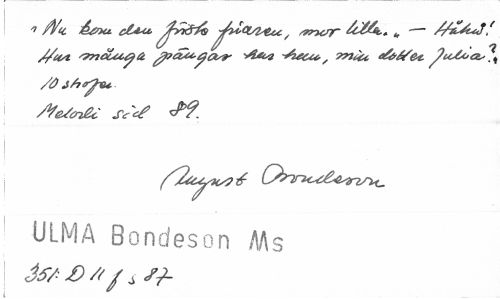 "Nu kom den förste friaren, mor lilla." — Håhå!
Hur många pängar har han, min dotter Julia?"
10 strofer.
Melodi sid 89.
August Bondeson
ULMA Bondeson Ms
351: D 11 f s 87